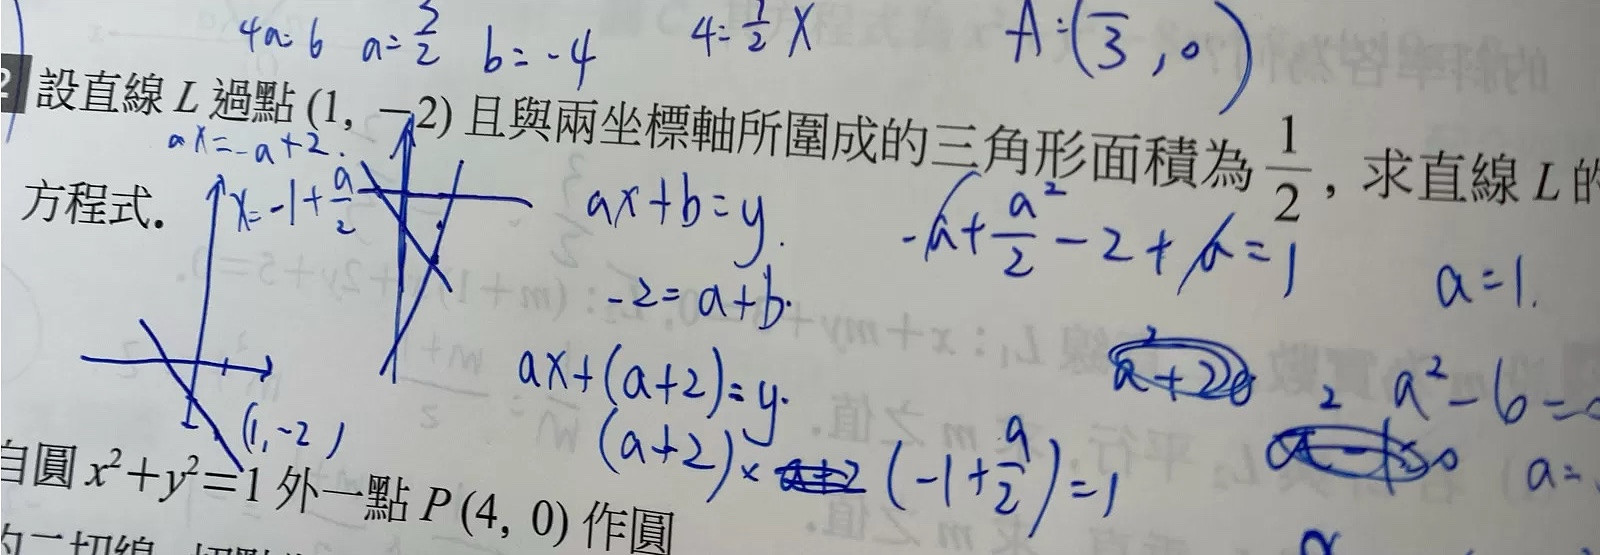 4a=6 a=3/2 b=-4 4=1/2 X A=(3, 0)
2 設直線 L 過點 (1, −2) 且與兩坐標軸所圍成的三角形面積為 1/2，求直線 L 的
方程式．
ax=-a+2.
x=-1+a/2
ax+b=y.
-a+a²/2-2+a=1
a=1.
-2=a+b.
ax+(a+2)=y.
a²-6=0
(1,-2)
(a+2)×(-1+a/2)=1
a=
自圓 x²+y²=1 外一點 P (4, 0) 作圓